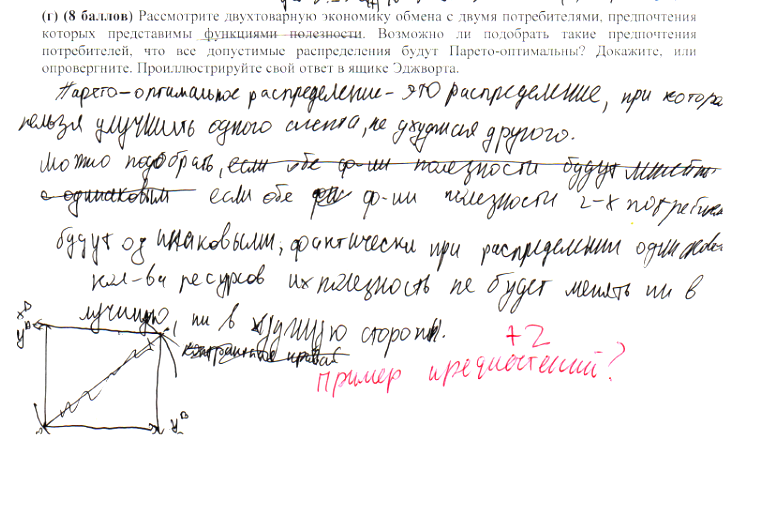 (г) (8 баллов) Рассмотрите двухтоварную экономику обмена с двумя потребителями, предпочтения
которых представимы функциями полезности. Возможно ли подобрать такие предпочтения
потребителей, что все допустимые распределения будут Парето-оптимальны? Докажите, или
опровергните. Проиллюстрируйте свой ответ в ящике Эджворта.
Парето-оптимальное распределение - это распределение, при котора
нельзя улучшить одного агента, не ухудшая другого.
можно подобрать, если обе ф-ии полезности будут
с одинаковым если обе ф-ии полезности 2-х потребител
будут одинаковыми, фактически при распределении одинаков
кол-ва ресурсов их полезность не будет менять ни в
лучшую, ни в худшую сторону.
+2
контрактная кривая
Пример предпочтений?
xᴰ
yᴰ
yᴮ